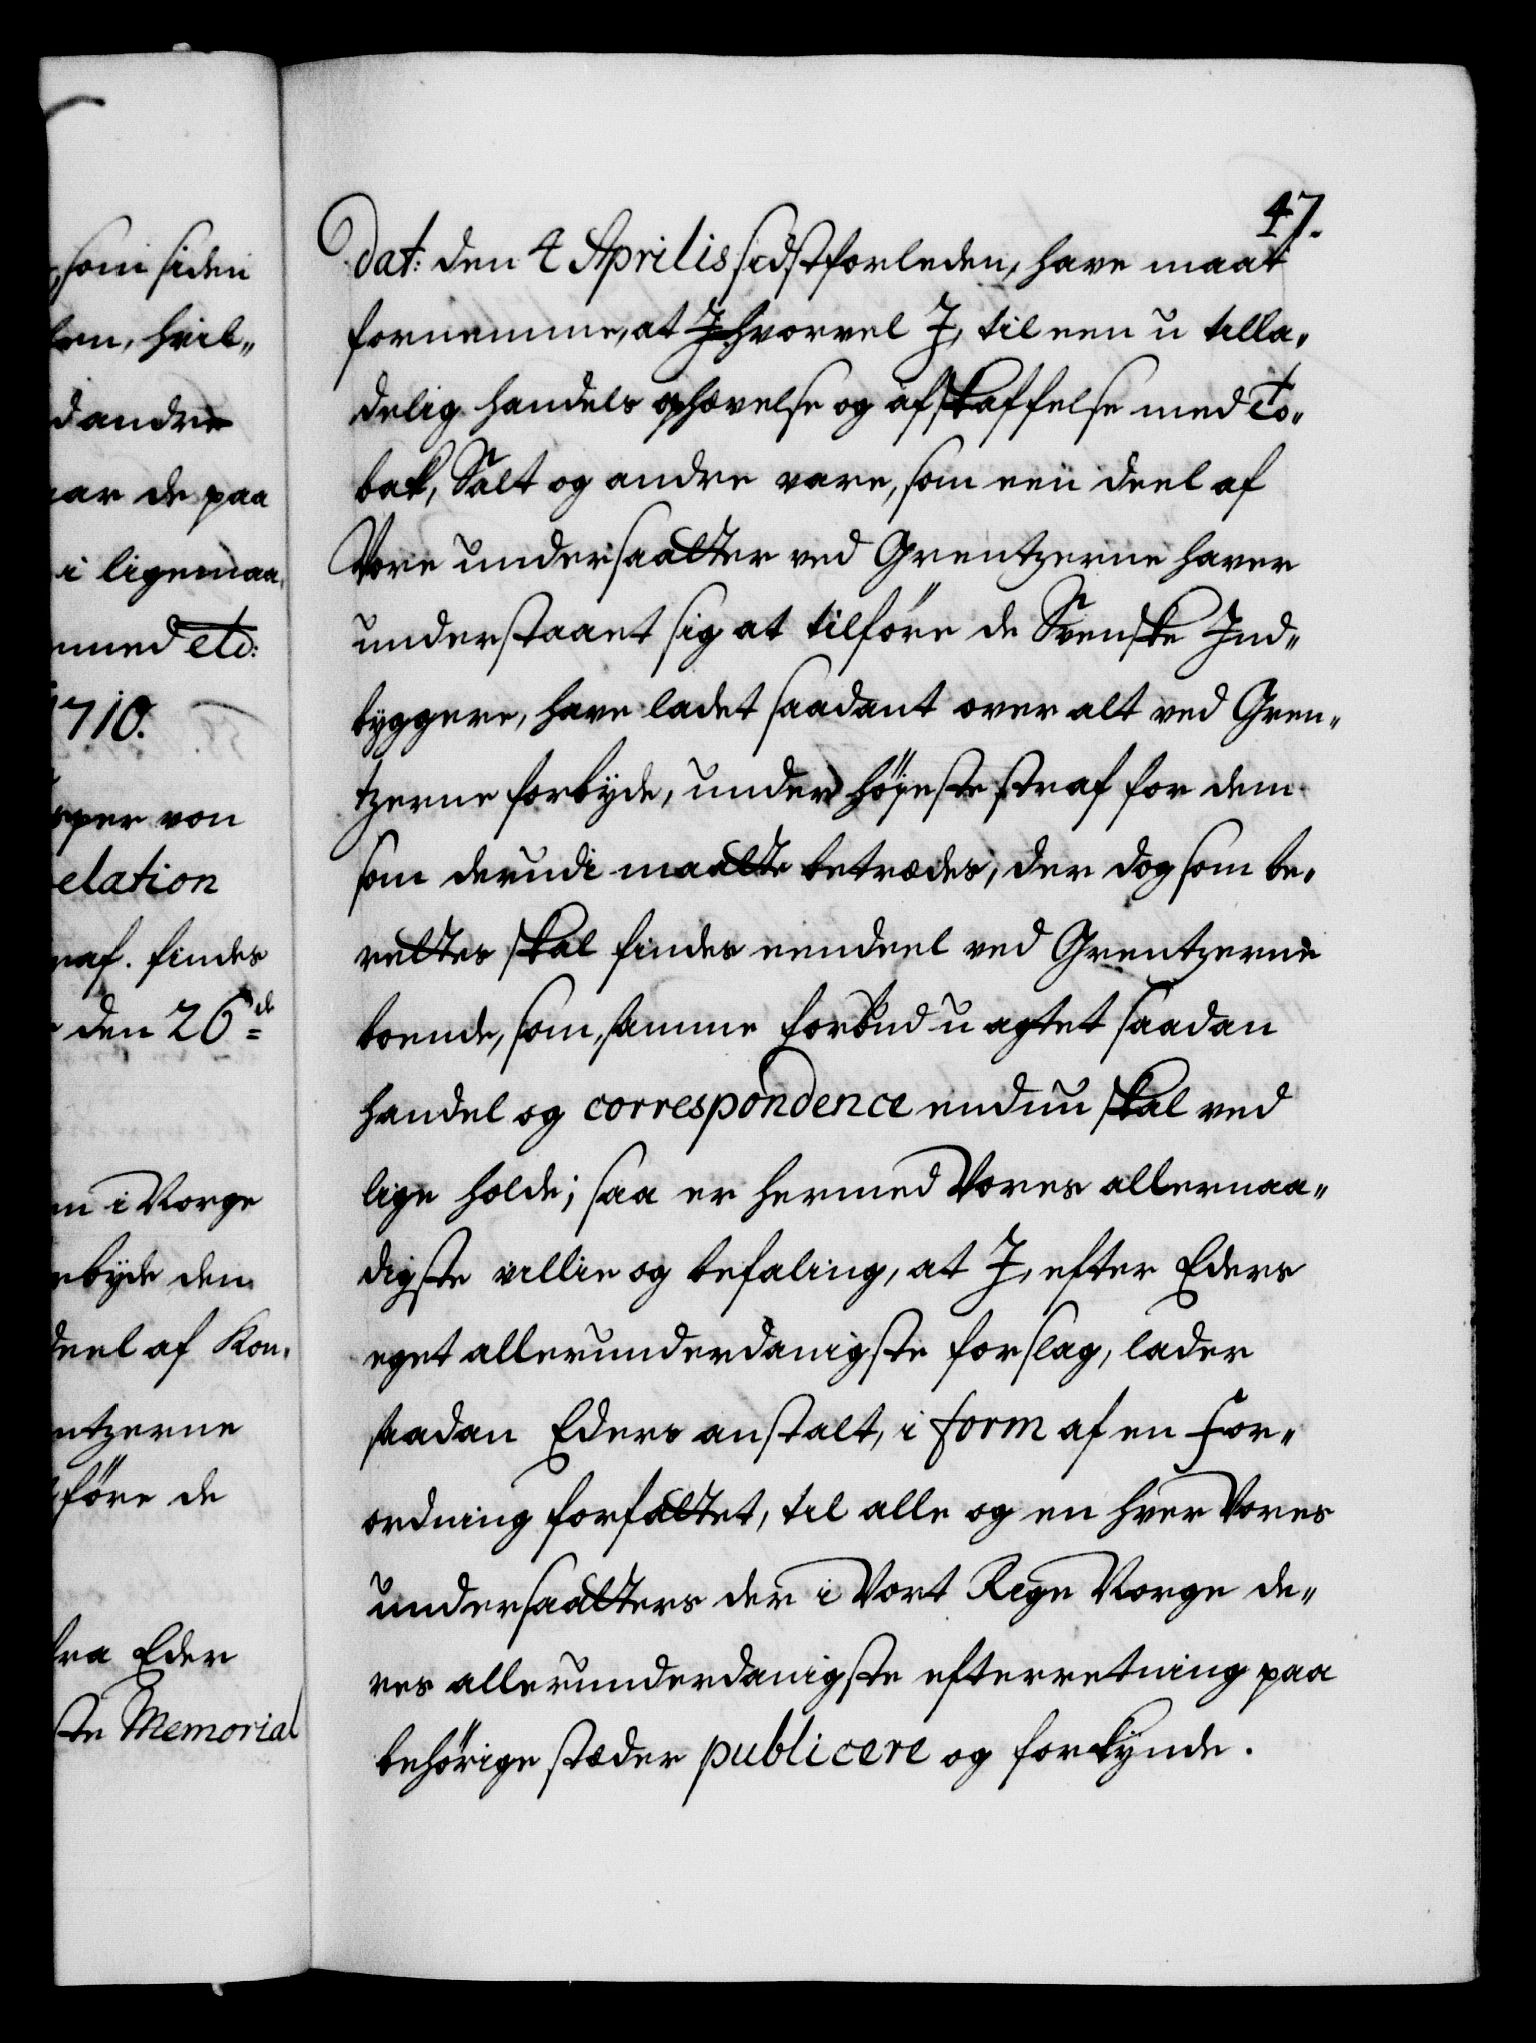 som siden
en, hvil-
d andre
ar de paa
i ligemaa-
med etc:
1710.
per von
elation
af. findes
den 26de
n i Norge
byde den
deel af Kon-
ntzerne
före de
fra Eder
ste Memorial
47.
dat: den 4 Aprilis sidstforleden, have maat
fornemme, at J hvorvel J, til een u tilla-
delig handels ophævelse og afskaffelse med To-
bak, Salt og andre vare, som een deel af
Vore undersaatter ved Grentzerne haver
understaaet sig at tilföre de Svenske Ind-
byggere, have ladet saadant over alt ved Gren-
tzerne forbyde, under höyeste straf for dem
som derudi maatte betrædes, der dog som be-
rettes skal findes eendeel ved Grentzerne
boende, som, samme forbud u agtet saadan
handel og correspondence endnu skal ved
lige holde; saa er hermed Vores allernaa-
digste villie og befaling, at J, efter Eders
eget allerunderdanigste forslag, lader
saadan Eders anstalt, i form af en For-
ordning forfattet, til alle og en hver Vores
undersaatters der i Vort Rige Norge de-
res allerunderdanigste efterretning paa
behörige stæder publicere og forkynde.